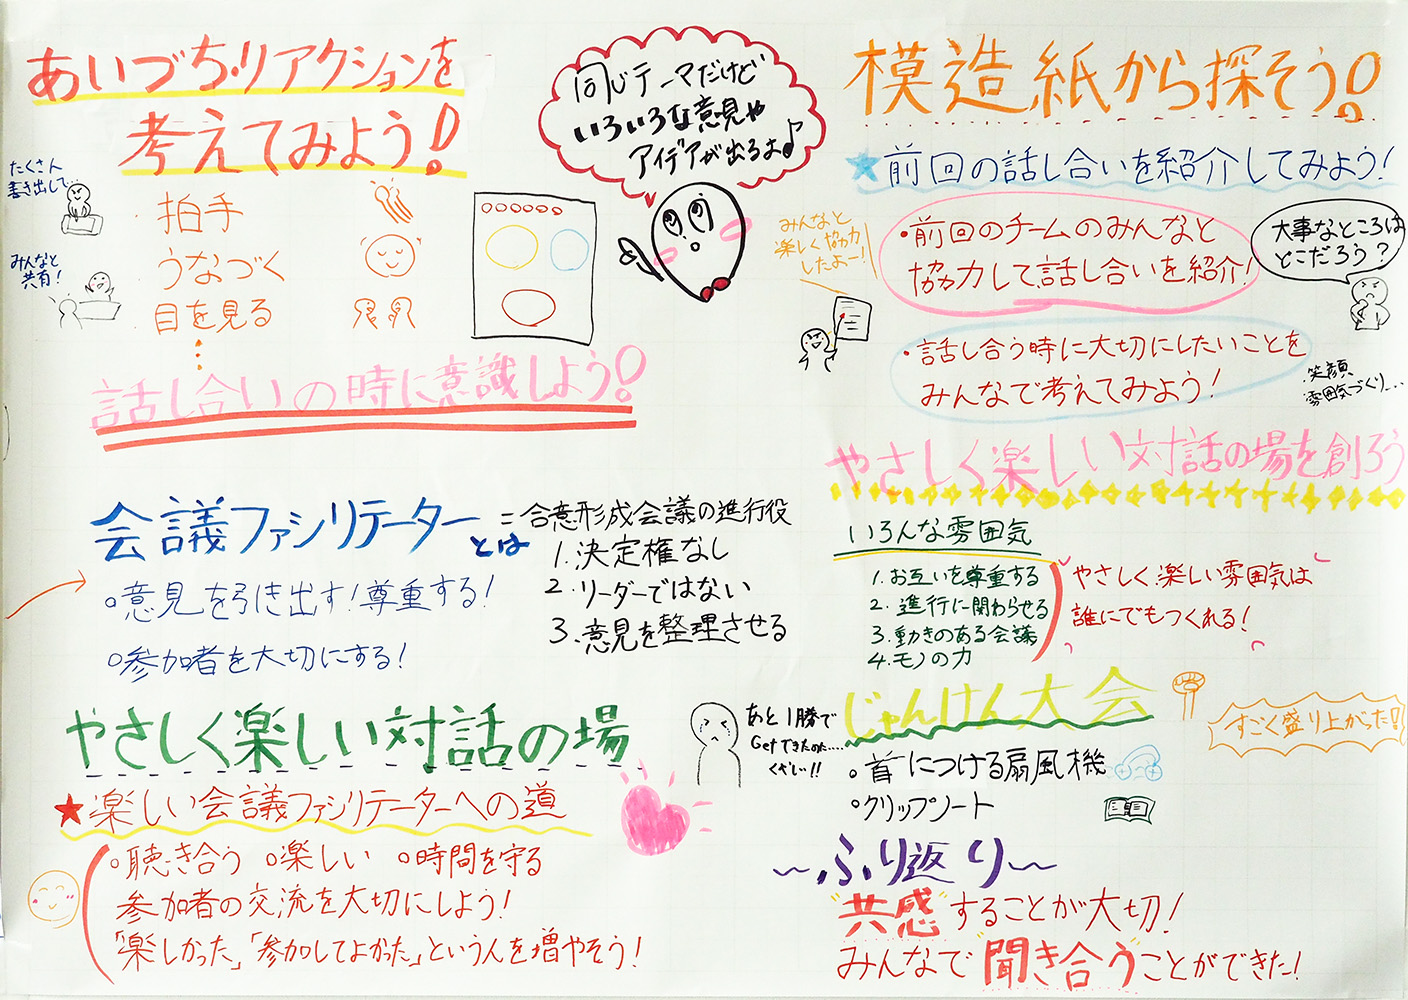 あいづち・リアクションを
考えてみよう!
たくさん
書き出して…
みんなと
共有!
拍手
うなづく
目を見る
⋮
話し合いの時に意識しよう!
同じテーマだけど
いろいろな意見や
アイデアが出るよ♪
会議ファシリテーターとは
=合意形成会議の進行役
1.決定権なし
2.リーダーではない
3.意見を整理させる
○意見を引き出す!尊重する!
○参加者を大切にする!
やさしく楽しい対話の場
★楽しい会議ファシリテーターへの道
○聴き合う ○楽しい ○時間を守る
参加者の交流を大切にしよう!
「楽しかった」「参加してよかった」という人を増やそう!
模造紙から探そう!
★前回の話し合いを紹介してみよう!
みんなと
楽しく協力
したよー!
・前回のチームのみんなと
協力して話し合いを紹介!
大事なところは
どこだろう?
・話し合う時に大切にしたいことを
みんなで考えてみよう!
笑顔
雰囲気づくり…
やさしく楽しい対話の場を創ろう
いろんな雰囲気
1.お互いを尊重する
2.進行に関わらせる
3.動きのある会議
4.モノの力
やさしく楽しい雰囲気は
誰にでもつくれる!
じゃんけん大会
すごく盛り上がった!
あと1勝で
Getできたのた.....
くやしい!!
○首につける扇風機
○クリップノート
〜ふり返り〜
"共感"することが大切!
みんなで聞き合うことができた!